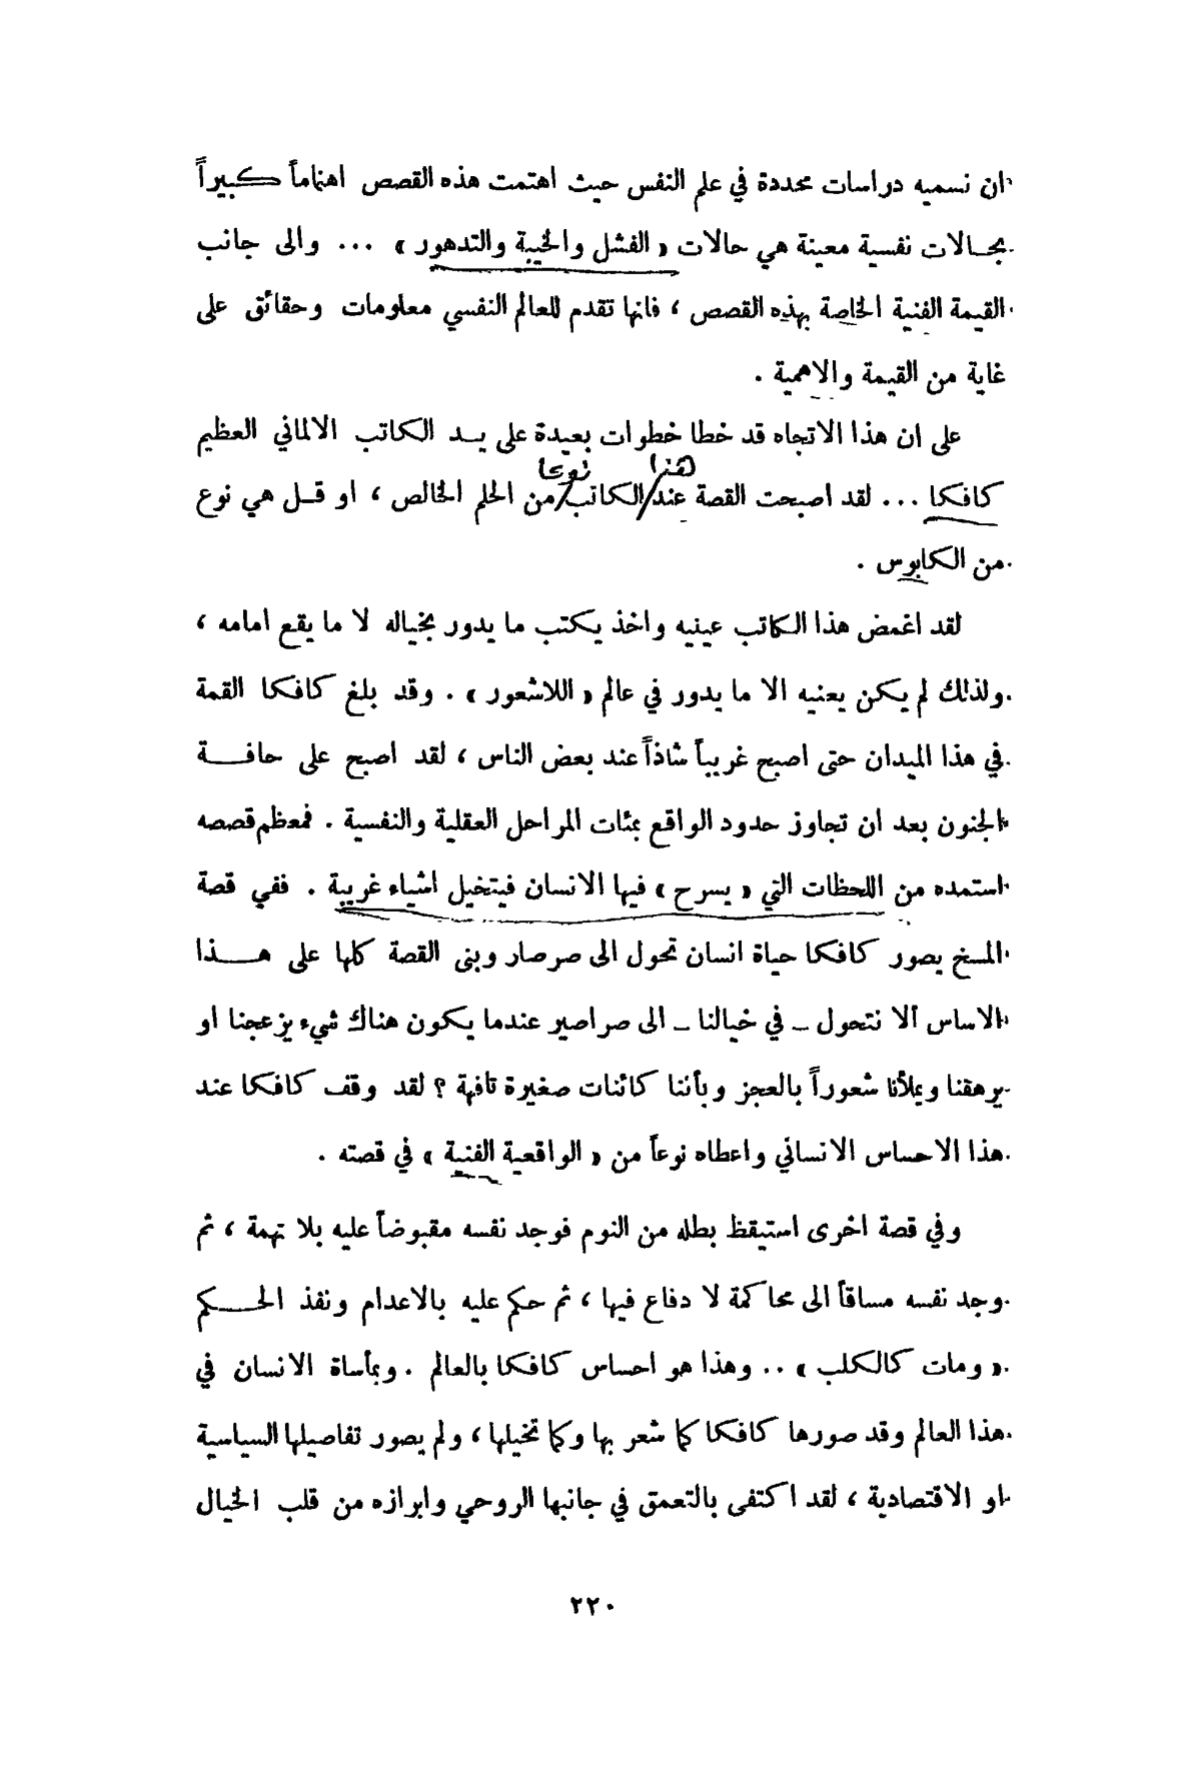 ان نسميه دراسات محددة في علم النفس حيث اهتمت هذه القصص اهتماماً كبيراً
بحالات نفسية معينة هي حالات « الفشل والخيبة والتدهور » ... والى جانب
القيمة الفنية الخاصة بهذه القصص ، فانها تقدم للعالم النفسي معلومات وحقائق على
غاية من القيمة والاهمية .
على ان هذا الاتجاه قد خطا خطوات بعيدة على يد الكاتب الالماني العظيم
هذا نوعا
كافكا ... لقد اصبحت القصة عند/الكاتب/من الحلم الخالص ، او قل هي نوع
من الكابوس .
لقد اغمض هذا الكاتب عينيه واخذ يكتب ما يدور بخياله لا ما يقع امامه ،
ولذلك لم يكن يعنيه الا ما يدور في عالم « اللاشعور » . وقد بلغ كافكا القمة
في هذا الميدان حتى اصبح غريباً شاذاً عند بعض الناس ، لقد اصبح على حافة
الجنون بعد ان تجاوز حدود الواقع بمئات المراحل العقلية والنفسية . فمعظم قصصه
استمده من اللحظات التي « يسرح » فيها الانسان فيتخيل اشياء غريبة . ففي قصة
المسخ يصور كافكا حياة انسان تحول الى صرصار وبنى القصة كلها على هذا
الاساس ألا نتحول – في خيالنا – الى صراصير عندما يكون هناك شيء يزعجنا او
يرهقنا ويملأنا شعوراً بالعجز وبأننا كائنات صغيرة تافهة ؟ لقد وقف كافكا عند
هذا الاحساس الانساني واعطاه نوعاً من « الواقعية الفنية » في قصته .
وفي قصة اخرى استيقظ بطله من النوم فوجد نفسه مقبوضاً عليه بلا تهمة ، ثم
وجد نفسه مساقاً الى محاكمة لا دفاع فيها ، ثم حكم عليه بالاعدام ونفذ الحكم
« ومات كالكلب » .. وهذا هو احساس كافكا بالعالم . وبمأساة الانسان في
هذا العالم وقد صورها كافكا كما شعر بها وكما تخيلها ، ولم يصور تفاصيلها السياسية
او الاقتصادية ، لقد اكتفى بالتعمق في جانبها الروحي وابرازه من قلب الخيال
٢٢٠